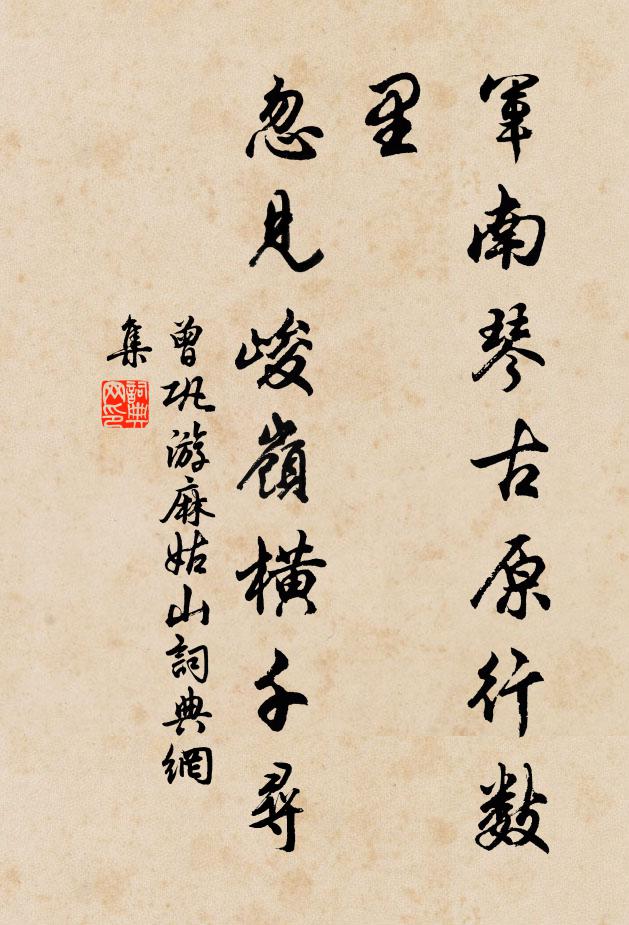 軍南琴古原行數
里
忽見峻嶺橫千尋
曾巩游麻姑山詞典網
集
詞典網印